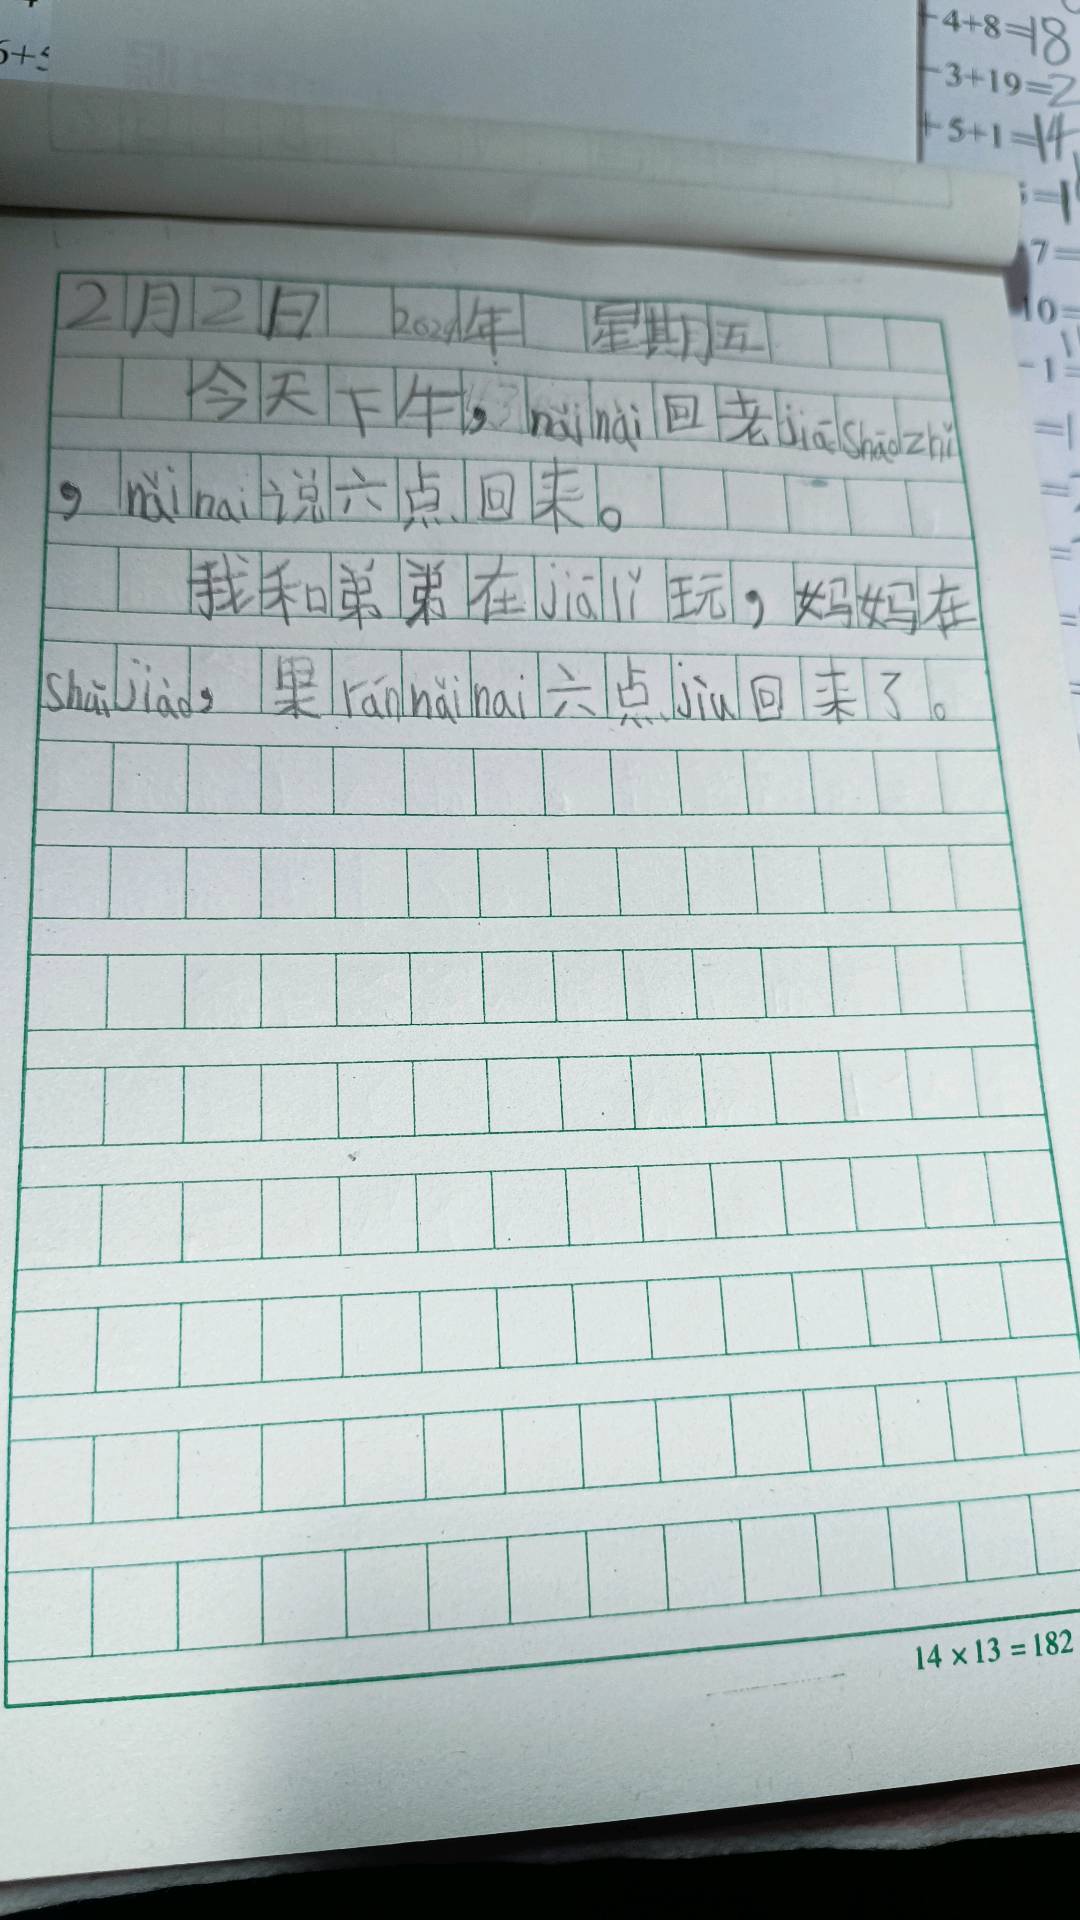 4+8=18
3+19=2
5+1=14
7=
10=
-1=
2月2日 2024年 星期五
今天下午,nǎinǎi回老jiāshāozhǐ
,nǎinai说六点回来。
我和弟弟在jiālǐ玩,妈妈在
shuìjiào,果ránnǎinai六点jiù回来了。
14×13=182